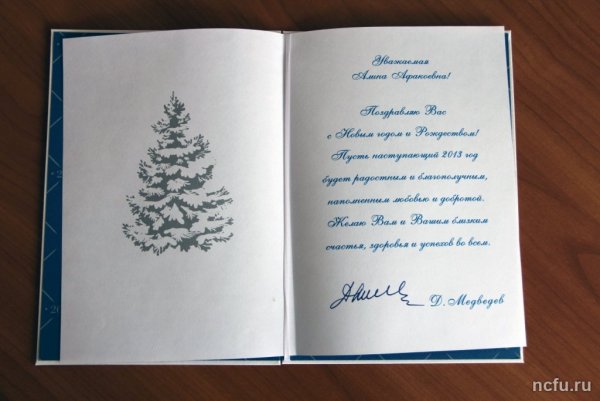 Уважаемая
Алина Афакоевна!
Поздравляю Вас
с Новым годом и Рождеством!
Пусть наступающий 2013 год
будет радостным и благополучным,
наполненным любовью и добротой.
Желаю Вам и Вашим близким
счастья, здоровья и успехов во всем.
Д. Медведев
ncfu.ru